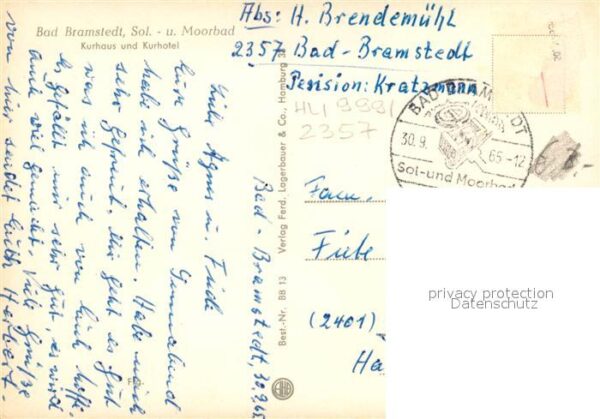 Bad Bramstedt, Sol. - u. Moorbad
Kurhaus und Kurhotel
Abs: H. Brendemühl
2357 Bad-Bramstedt
Pension: Kratzmann
HLI 9991
2357
BAD BRAMSTEDT
30.9. 65-12
Sol-und Moorbad
Bad-Bramstedt, 30.9.65
Liebe Agnes u. Fide
Eure Grüße von
habe ich erhalten. Habe mich
sehr gefreut. Mir geht es gut
was ich auch von Euch hoffe.
Es gefällt mir sehr gut, es wird
auch viel gemacht. Viele Grüße
von hier sendet Euch Herbert.
Verlag Ferd. Lagerbauer & Co., Hamburg
Best.-Nr. BB 13
Fam.
(2401)
privacy protection
Datenschutz